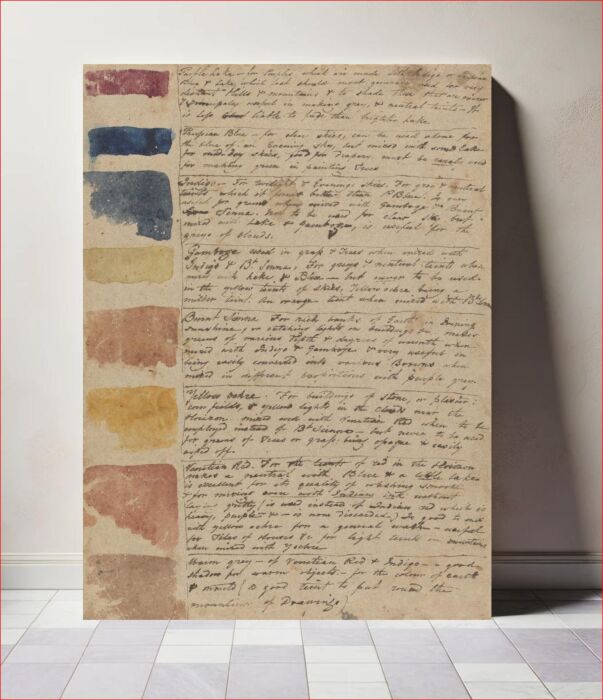 Purple Lake for Purples, which are made with Indigo or Prussian
Blue & Lake, which last should most generally be used for very
distant Hills & mountains & to shade those that are nearer
& principaly useful in making grey, & neutral teints. It
is less liable to fade than brighter Lake.
Prussian Blue for clear skies, can be used alone for
the blue of an Evening sky, but mixed with Lake
for skies, good for Drapery must be rarely used
for making green in painting Trees
Indigo. For twilight & Evening skies. For grey & neutral
teints which it forms better than P. Blue; is very
useful for greens when mixed with Gamboge & Burnt
Sienna. Not to be used for clear sky but
mixed with Lake & Gamboge, is useful for the
greys of Clouds.
Gamboge used in grass & Trees when mixed with
Indigo & Bt. Sienna, For greys & neutral teints when
mixed with Lake, & Blue — but never to be used
in the yellow teints of skies, Yellow ochre being a
milder teint. An orange teint when mixed with Bt. Sienna
Burnt Sienna For rich banks of Earth in Evening
Sunshine, or catching lights on buildings &c makes
greens of various Depth & degrees of warmth when
mixed with Indigo & Gamboge & very useful in
being easily converted into various Browns when
mixed in different proportions with purple grey.
Yellow Ochre. For buildings of Stone, or plaister;
corn fields, & yellow lights in the Clouds near the
Horizon. mixed with Venetian Red when to be
employed instead of Bt. Sienna — but never to be used
for greens of Trees or grass being opaque & easily
off.
Venetian Red. For the teints of red in the Horizon
makes a neutral with Blue & a little Lake
is excellent for its quality of washing smooth
& for mixing even with Indian Ink without
gritty (is used instead of Indian red which is
heavy, purple &c — is now discarded) Is good to mix
with yellow ochre for a general wash — useful
for Tiles of Houses &c for light teints on mountains
when mixed with Yochre.
Warm grey — of Venetian Red & Indigo — a good
shadow for warm objects — for the colour of earth
& (a good teint to put round the
mountings of Drawings)